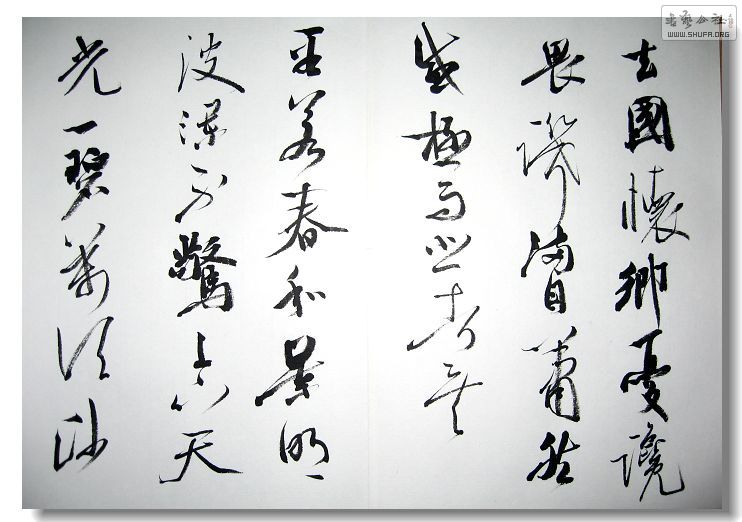 去國懷鄉憂讒
畏譏滿目蕭然
感極而悲者矣
至若春和景明
波瀾不驚上下天
光一碧萬頃沙
書藝公社
WWW.SHUFA.ORG